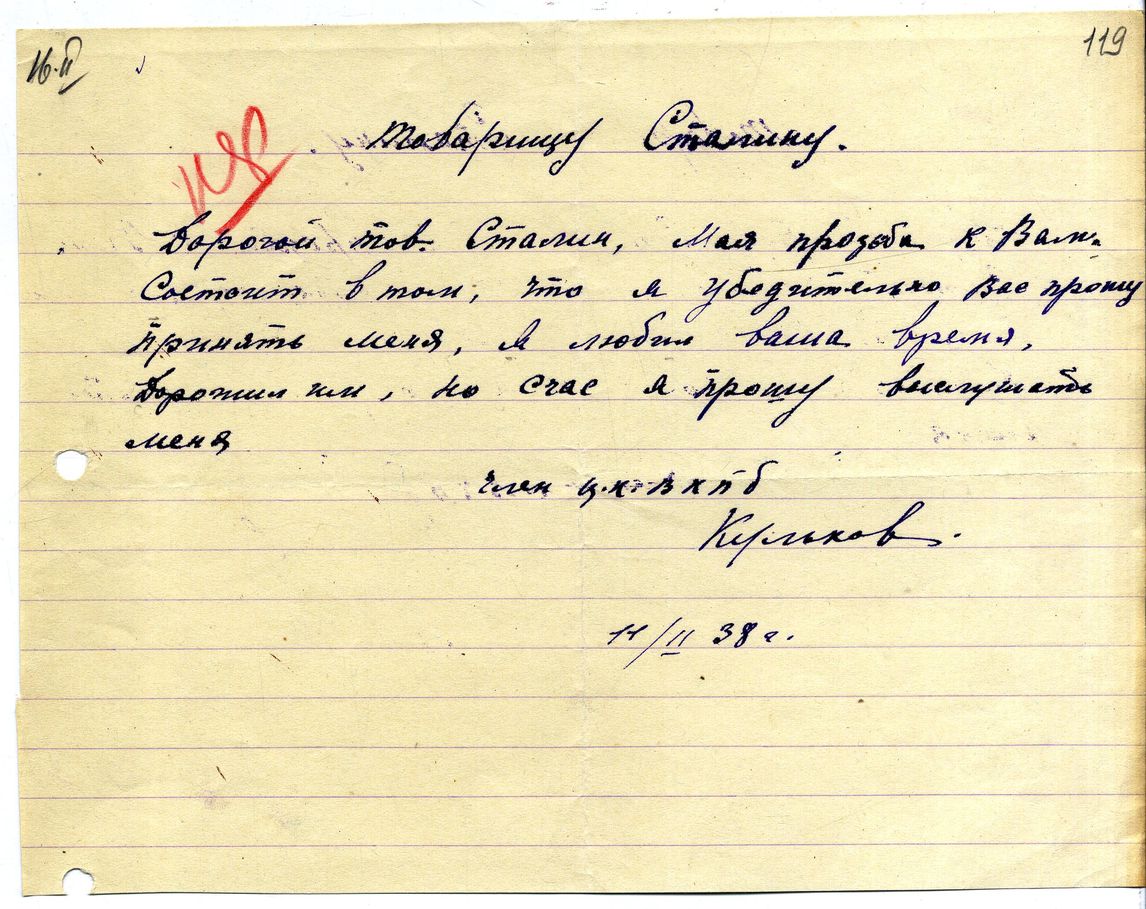 16.II
119
Товарищу Сталину.
Дорогой тов. Сталин, Мая прозьба к Вам.
Состоит в том, что я убедительно Вас прошу
принять меня, я любил ваша время,
Дорожил им, но счас я прошу выслушать
меня
Член ц.к. ВКПб
Кульков.
11/II 38 г.